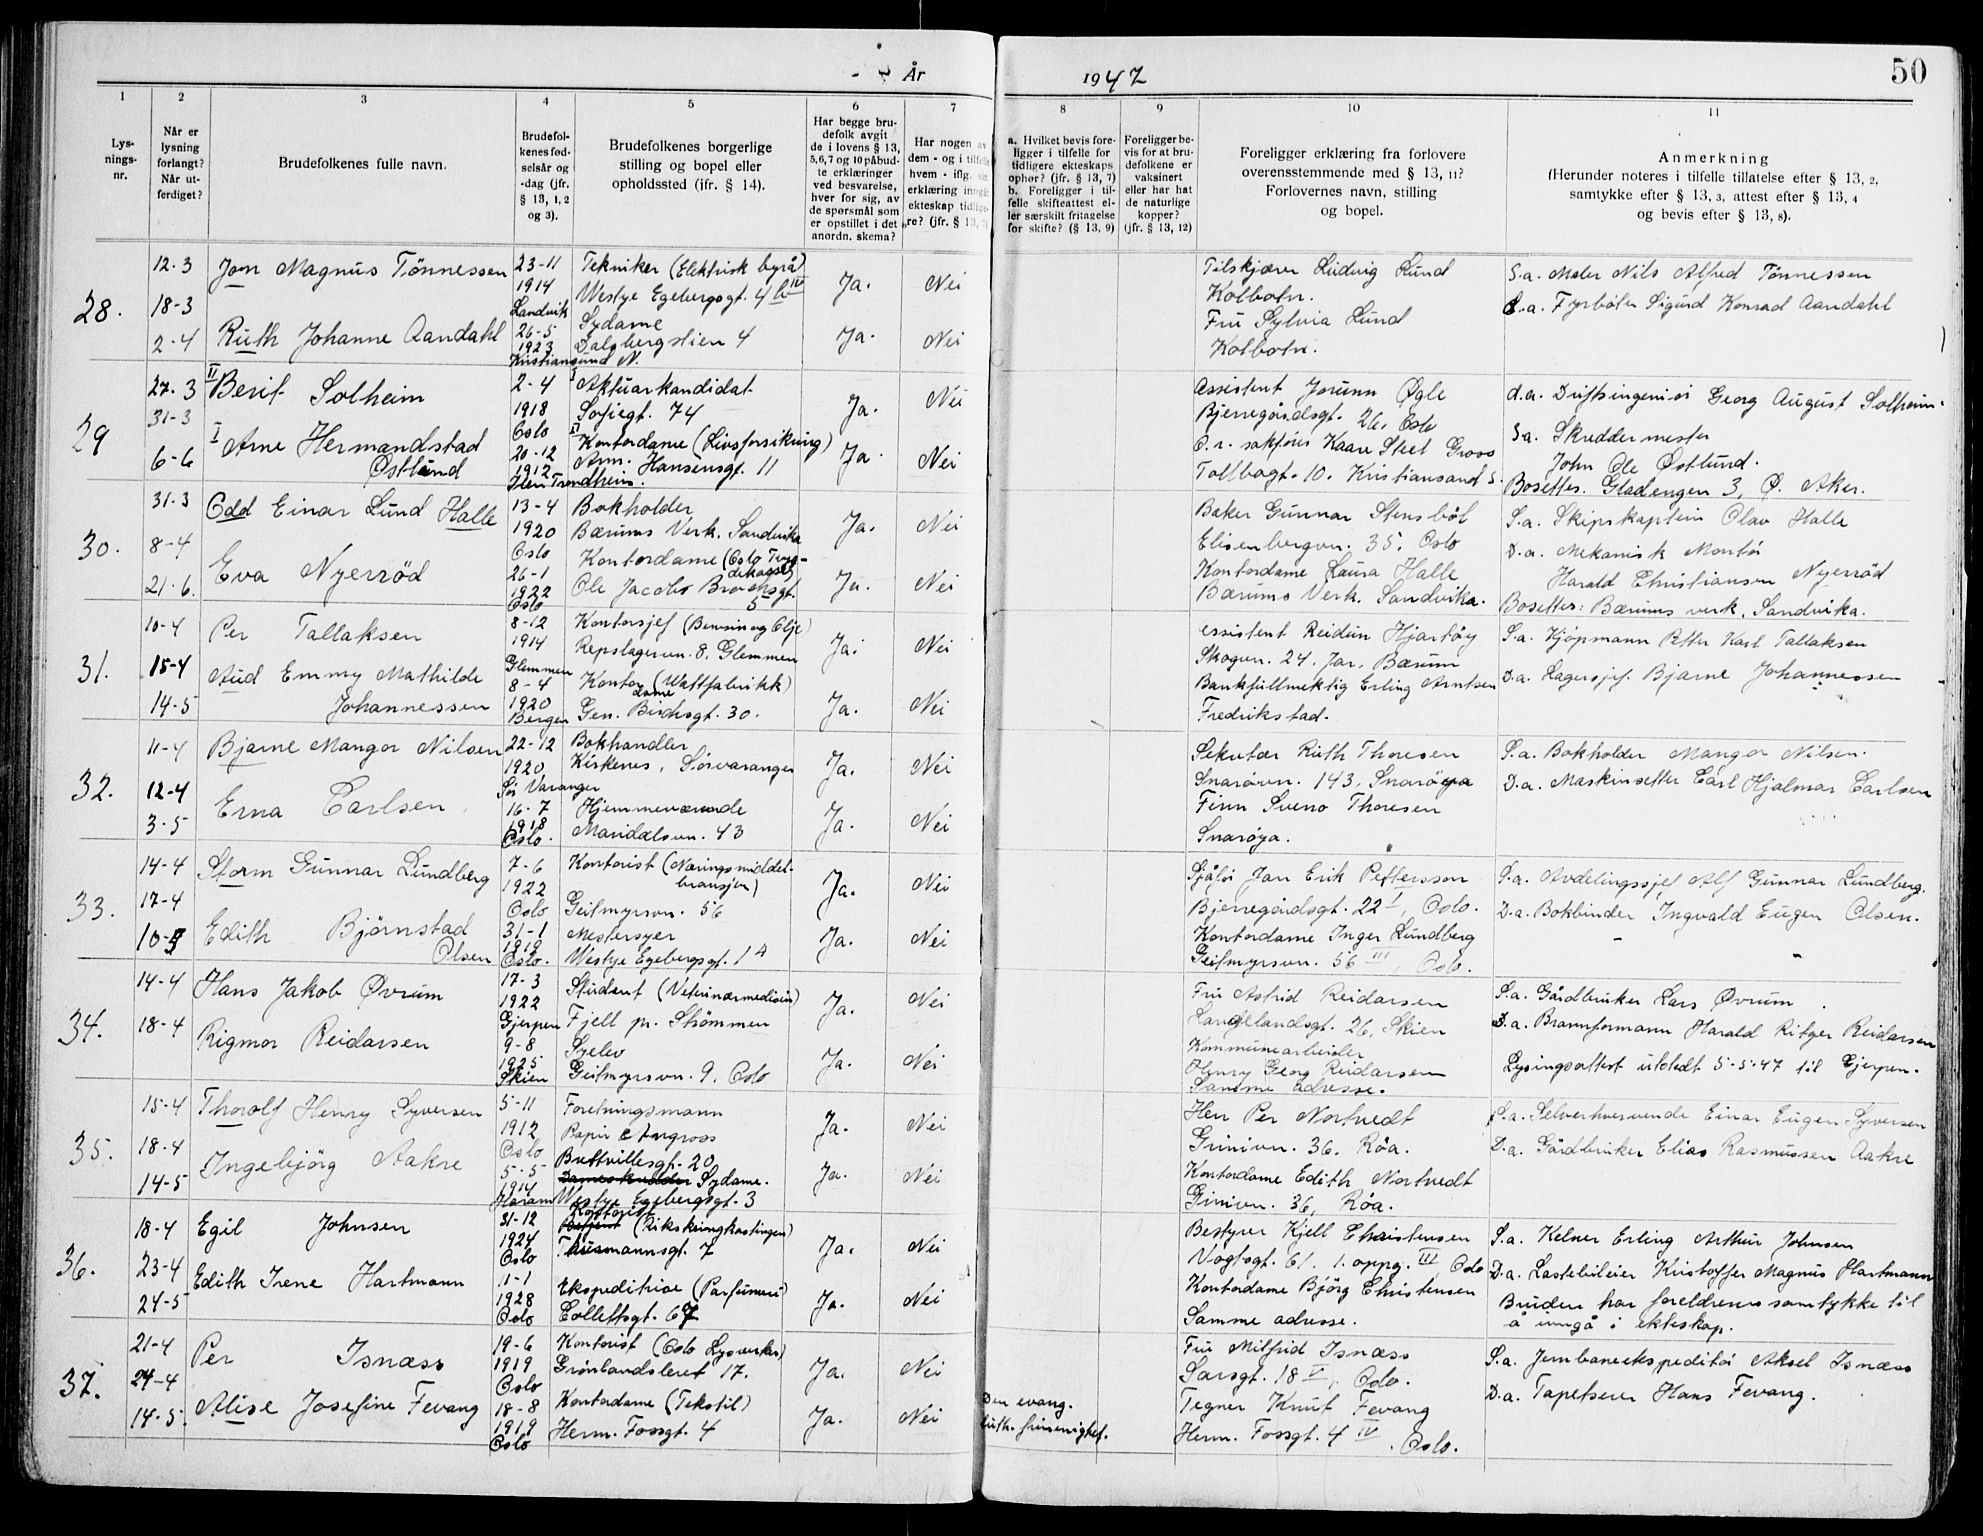 År 1947 50
1 2 3 4 5 6 7 8 9 10 11
Lys-
nings-
nr.
Når er
lysning
forlangt?
Når ut-
ferdiget?
Brudefolkenes fulle navn.
Brudefol-
kenes fød-
selsår og
-dag (jfr.
§ 13, 1, 2
og 3).
Brudefolkenes borgerlige
stilling og bopel eller
opholdssted (jfr. § 14).
Har begge bru-
defolk avgit
de i lovens § 13,
5,6,7 og 10 påbud-
te erklæringer
ved besvarelse,
hver for sig, av
de spørsmål som
er opstillet i det
anordn. skema?
Har nogen av
dem - og i tilfelle
hvem - iflg. sin
erklæring inngått
ekteskap tidlige-
re? (jfr. § 13, 7)
a. Hvilket bevis fore-
ligger i tilfelle for
tidligere ekteskaps
ophør? (jfr. § 13, 7)
b. Foreligger i til-
felle skifteattest el-
ler særskilt fritagelse
for skifte? (§ 13, 9)
Foreligger be-
vis for at bru-
defolkene er
vaksinert
eller har hat
de naturlige
kopper?
(jfr. § 13, 12)
Foreligger erklæring fra forlovere
overensstemmende med § 13, 11?
Forlovernes navn, stilling
og bopel.
Anmerkning
(Herunder noteres i tilfelle tillatelse efter § 13, 2,
samtykke efter § 13, 3, attest efter § 13, 4
og bevis efter § 13, 8).
28.
12.3
18-3
2-4
Jon Magnus Tønnessen
Ruth Johanne Aandahl
23-11
1914
Landvik
26-5
1923
Kristiansund N.
Tekniker (Elektrisk byrå)
Westye Egebergsgt. 4 b IV
Sydame
Dalsbergstien 4
Ja.
Ja.
Nei
Nei
Ludvig Lund
Kolbotn.
Fru Sylvia Lund
Kolbotn.
S.a. Maler Nils Alfred Tønnessen
D.a. Fyrbøter Sigurd Konrad Aandahl
29
27.3
31-3
6-6
II Berit Solheim
I Arne Hermandstad
Østlund
2-4
1918
Oslo
20-12
1912
Trondheim.
I Aktuarkandidat
Sofiegt. 74
II Kontordame (Livsforsikring)
Arm. Hansensgt. 11
Ja.
Ja.
Nei
Nei
Assistent Jorunn Øgle
Bjerregårdsgt. 26, Oslo
O.r. sakfører Kaare Steel Groos
Tollbogt. 10. Kristiansand S.
d.a. Driftsingeniør Georg August Solheim.
S.a. Skreddermester
John Ole Østlund.
Bosettes. Gladengen 3, Ø. Aker.
30.
31.3
8-4
21.6.
Odd Einar Lund Halle
Eva Nyerrød
13-4
1920
Oslo
26-1
1922
Oslo
Bokholder
Bærums Verk. Sandvika
Kontordame (Oslo Tryg-
dekasse)
Ole Jacobs Brochsgt.
5
Ja.
Ja.
Nei
Nei
Baker Gunnar Stensbøl
Elisenbergvn. 35, Oslo
Kontordame Laura Halle
Bærums Verk. Sandvika.
S.a. Skipskaptein Olav Halle
D.a. Mekanisk Montør
Harald Christiansen Nyerrød
Bosettes: Bærums verk, Sandvika.
31.
10-4
15-4
14-5
Per Tallaksen
Aud Emmy Mathilde
Johannessen
8-12
1914
Glemmen
8-4
1920
Bergen
Kontorsjef (Bensin og Olje)
Repslagervn. 8. Glemmen
Kontordame (Wattfabrikk)
Gen. Birchsgt. 30.
Ja.
Ja.
Nei
Nei
Assistent Reidun Hjartøy
Skogvn. 24, Jar, Bærum
Bankfullmektig Erling Arntsen
Fredrikstad.
S.a. Kjøpmann Petter Karl Tallaksen
D.a. Lagersjef. Bjarne Johannessen
32.
11-4
12-4
3-5
Bjarne Mangor Nilsen
Erna Carlsen
22-12
1920
Sør Varanger
16-7
1918
Oslo.
Bokhandler
Kirkenes, Sørvaranger
Hjemmeværende
Maridalsvn. 43
Ja.
Ja.
Nei
Nei
Sekretær Ruth Thoresen
Snarøvn. 143, Snarøya
Finn Sveno Thoresen
Snarøya.
S.a. Bokholder Mangor Nilsen.
D.a. Maskinsetter Carl Hjalmar Carlsen
33.
14-4
17-4
10-5
Storm Gunnar Lundberg
Edith Bjørnstad
Olsen
7-6
1922
Oslo
31-1
1919
Oslo.
Kontorist (Næringsmiddel-
bransjen)
Geitmyrsvn. 56
Mestersyer
Westye Egebergsgt. 1 A
Ja.
Ja.
Nei
Nei
Sjåfør Jan Erik Pettersson
Bjerregårdsgt. 22 I, Oslo.
Kontordame Inger Lundberg
Geitmyrsvn. 56 III, Oslo.
S.a. Avdelingssjef Alf Gunnar Lundberg.
D.a. Bokbinder Ingvald Eugen Olsen.
34.
14-4
18-4
Hans Jakob Øvrum
Rigmor Reidarsen
17-3
1922
Gjerpen
9-8
1925
Skien
Student (Veterinærmedisin)
Fjell pr. Strømmen
Syelev
Geitmyrsvn. 9, Oslo
Ja.
Ja.
Nei
Nei
Fru Astrid Reidarsen
Langelandsgt. 26, Skien
Kommunearbeider
Henry Georg Reidarsen
Samme adresse.
S.a. Gårdbruker Lars Øvrum.
D.a. Brannformann Harald Ritger Reidarsen
Lysingsattest utstedt 5-5-47 til Gjerpen.
35.
15-4
18-4
14-5
Thorolf Henry Syversen
Ingebjørg Aakre
5-11
1912
Oslo
5-5
1914
Haram
Forretningsmann
Papir engros
Bretvillesgt. 20
Sydame.
Westye Egebergsgt. 3
Ja.
Ja.
Nei
Nei
Herr Per Nortvedt
Grinivn. 36. Røa.
Kontordame Edith Nortvedt
Grinivn. 36, Røa.
S.a. Selverhvervende Einar Eugen Syversen
D.a. Gårdbruker Elias Rasmussen Aakre
36.
18-4
23-4
24-5
Egil Johnsen
Edith Irene Hartmann
31-12
1924
Oslo
11-1
1928
Oslo
Kontorist
Betjent (Rikskringkastingen)
Thurmannsgt. 7
Ekspeditrise (Parfumeri)
Collettsgt. 67
Ja.
Ja.
Nei
Nei
Bestyrer Kjell Christensen
Vogtsgt. 61, 1. oppg. III Oslo
Kontordame Bjørg Christensen
Samme adresse.
S.a. Kelner Erling Arthur Johnsen
D.a. Lastebileier Kristoffer Magnus Hartmann
Bruden har foreldrenes samtykke til
å inngå i ekteskap.
37.
21-4
24-4
14-5
Per Isnæss
Alise Josefine Fevang
19-6
1919
Oslo
18-8
1919
Oslo
Kontorist (Oslo Lysverker)
Grønlandsleret 17.
Kontordame (Tekstil)
Herm. Fossgt. 4
Ja.
Ja.
Nei
Nei
Den evang.
luth. frimenighet.
Fru Milfrid Isnæss
Sarsgt. 18 V, Oslo.
Tegner Knut Fevang
Herm. Fossgt. 4 IV, Oslo.
S.a. Jernbaneekspeditør Aksel Isnæss
D.a. Tapetserer Hans Fevang.